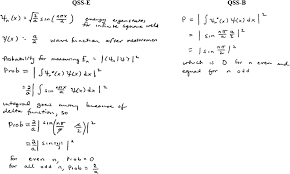 QSS-E
ψn(x) = √(2/a) sin(nπx/a) energy eigenstates
for infinite square well
ψ(x) = a/2 wave function after measurement
Probability for measuring En = |⟨ψn|ψ⟩|²
Prob = |∫ψn*(x) ψ(x) dx|²
= 2/a |∫ sin nπx/a dx|²
integral goes away because of
delta function, so
Prob = 2/a | sin(nπ/a a/2)|²
= 2/a | sin nπ/2 |²
for even n, Prob = 0
for all odd n, Prob = 2/a
QSS-B
P = |∫ψn*(x) ψ(x) dx|²
= | sin nπ/a a/2 |²
= | sin nπ/2 |²
which is 0 for n even and
equal for n odd